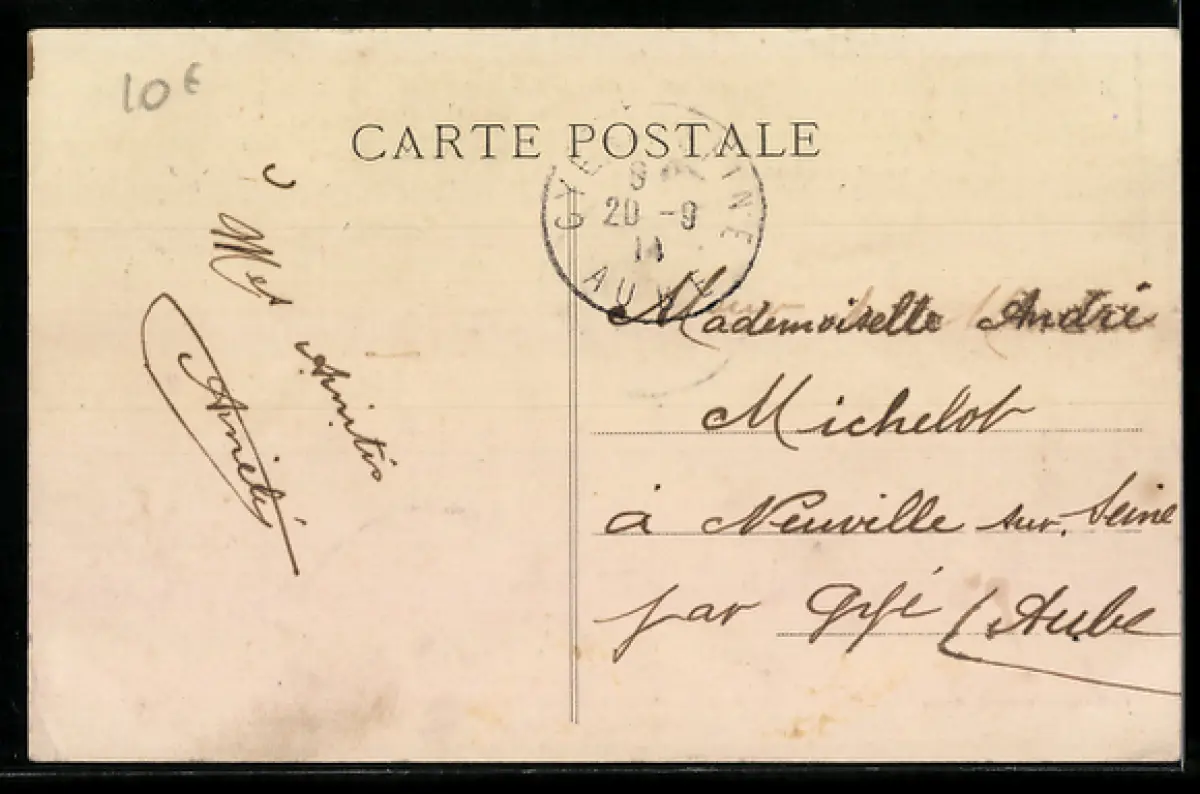 10€
CARTE POSTALE
GYE SEINE
8
20 - 9
14
AUBE
Mes
Amitis
Aimeé
Mademoiselle André
Michelot
à Neuville sur. Seine
par Gyé (Aube